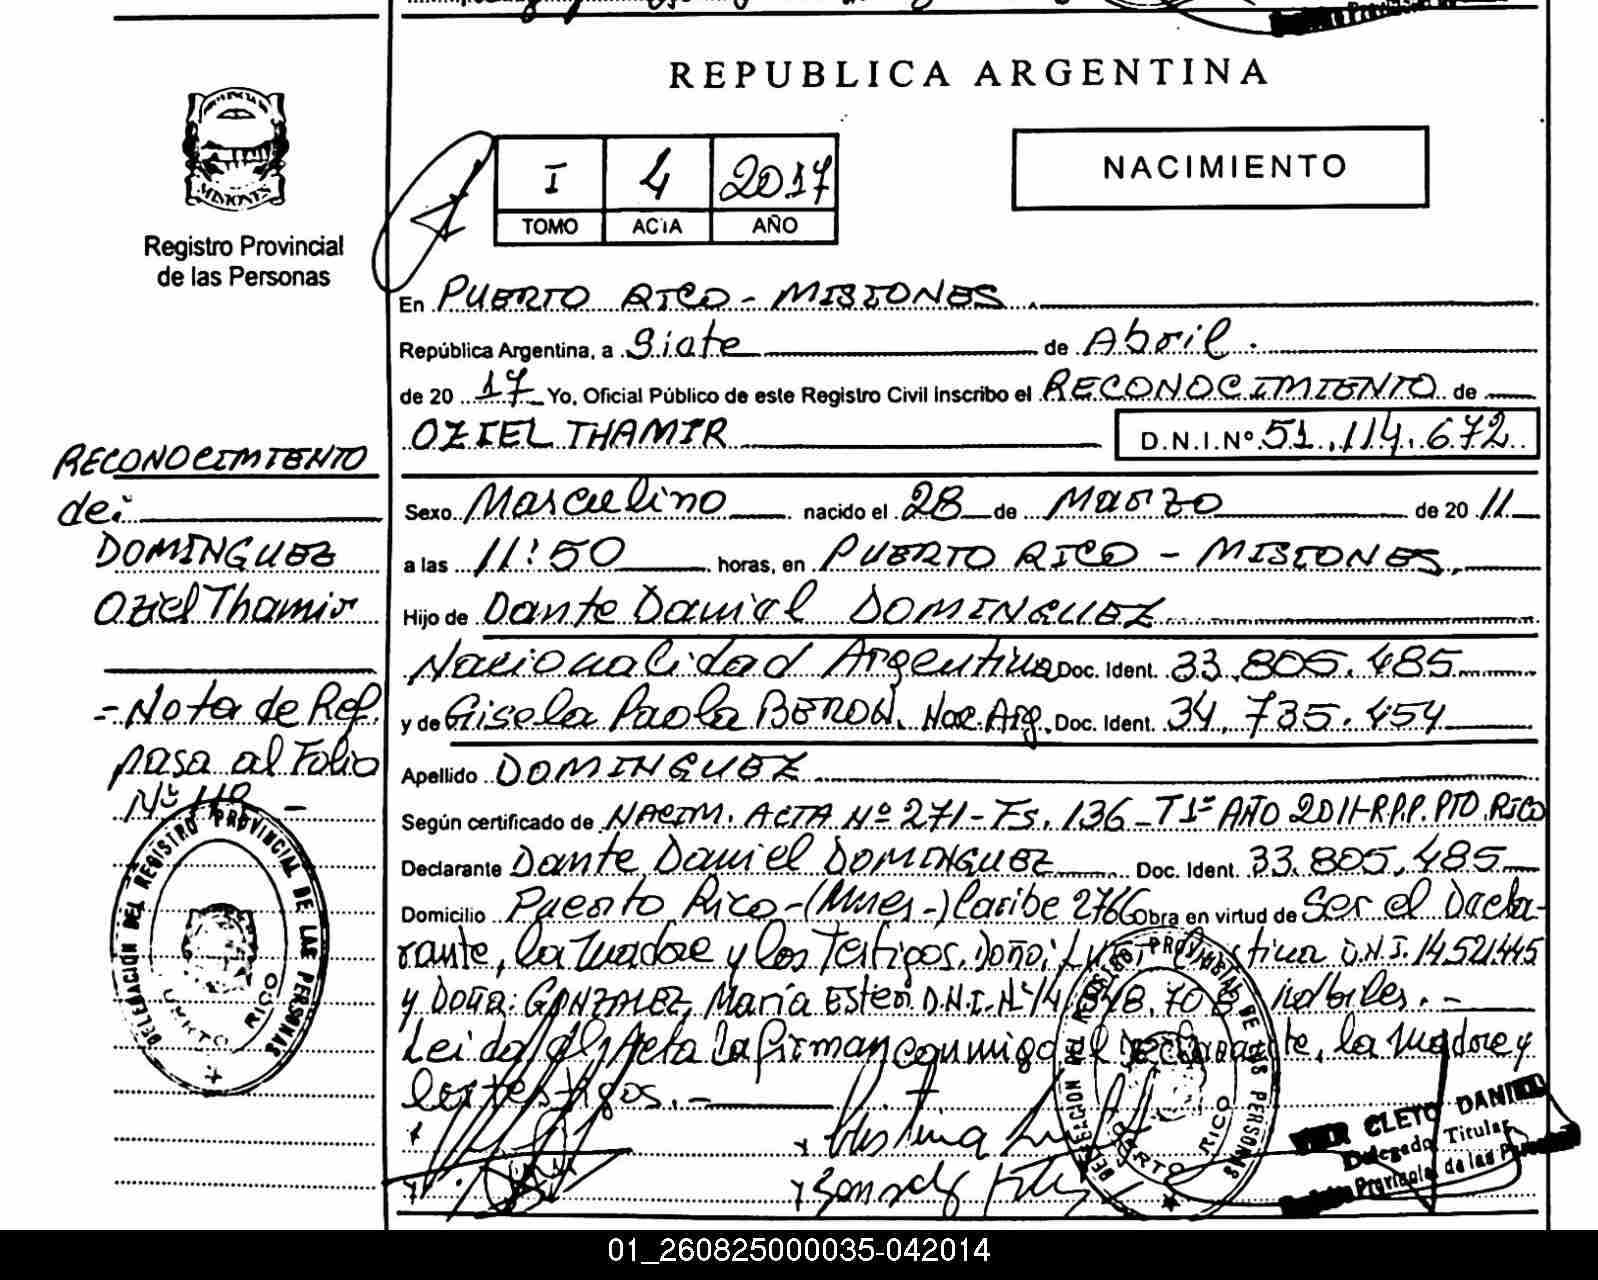 REPUBLICA ARGENTINA
PROVINCIA DE
MISIONES
Registro Provincial
de las Personas
I 4 2017
TOMO ACTA AÑO
NACIMIENTO
En PUERTO RICO - MISIONES
República Argentina, a Siete de Abril.
de 20 17 Yo, Oficial Público de este Registro Civil Inscribo el RECONOCIMIENTO de
OZIEL THAMIR D.N.I.Nº 51.114.672
RECONOCIMIENTO
de:
DOMINGUEZ
Oziel Thamir
- Nota de Ref.
pasa al Folio
Nº 118 -
Sexo Masculino nacido el 28 de Marzo de 20 11
a las 11:50 horas, en PUERTO RICO - MISIONES.
Hijo de Dante Daniel DOMINGUEZ
Nacionalidad Argentina Doc. Ident. 33.805.485
y de Gisela Paola BERON. Nac. Arg. Doc. Ident. 34.735.454
Apellido DOMINGUEZ
Según certificado de NACIM. ACTA Nº 271 - Fs. 136 - T1º AÑO 2011-R.P.P. PTO. RICO
Declarante Dante Daniel DOMINGUEZ Doc. Ident. 33.805.485
Domicilio Puerto Rico - (Mnes-) Caribe 2766 Obra en virtud de Ser el Decla-
rante, la madre y los Testigos. Doña: D.N.I. 14.521.445
y Doña: GONZALEZ, María Ester D.N.I. Nº hábiles. -
Leida el Acta La firman conmigo el Declarante, la madre y
los testigos. -
DELEGACION DEL REGISTRO PROVINCIAL DE LAS PERSONAS
PUERTO RICO
DELEGACION DEL REGISTRO PROVINCIAL DE LAS PERSONAS
PUERTO RICO
CLETO DANIEL
Delegado Titular
Registro Provincial de las Personas
01_260825000035-042014